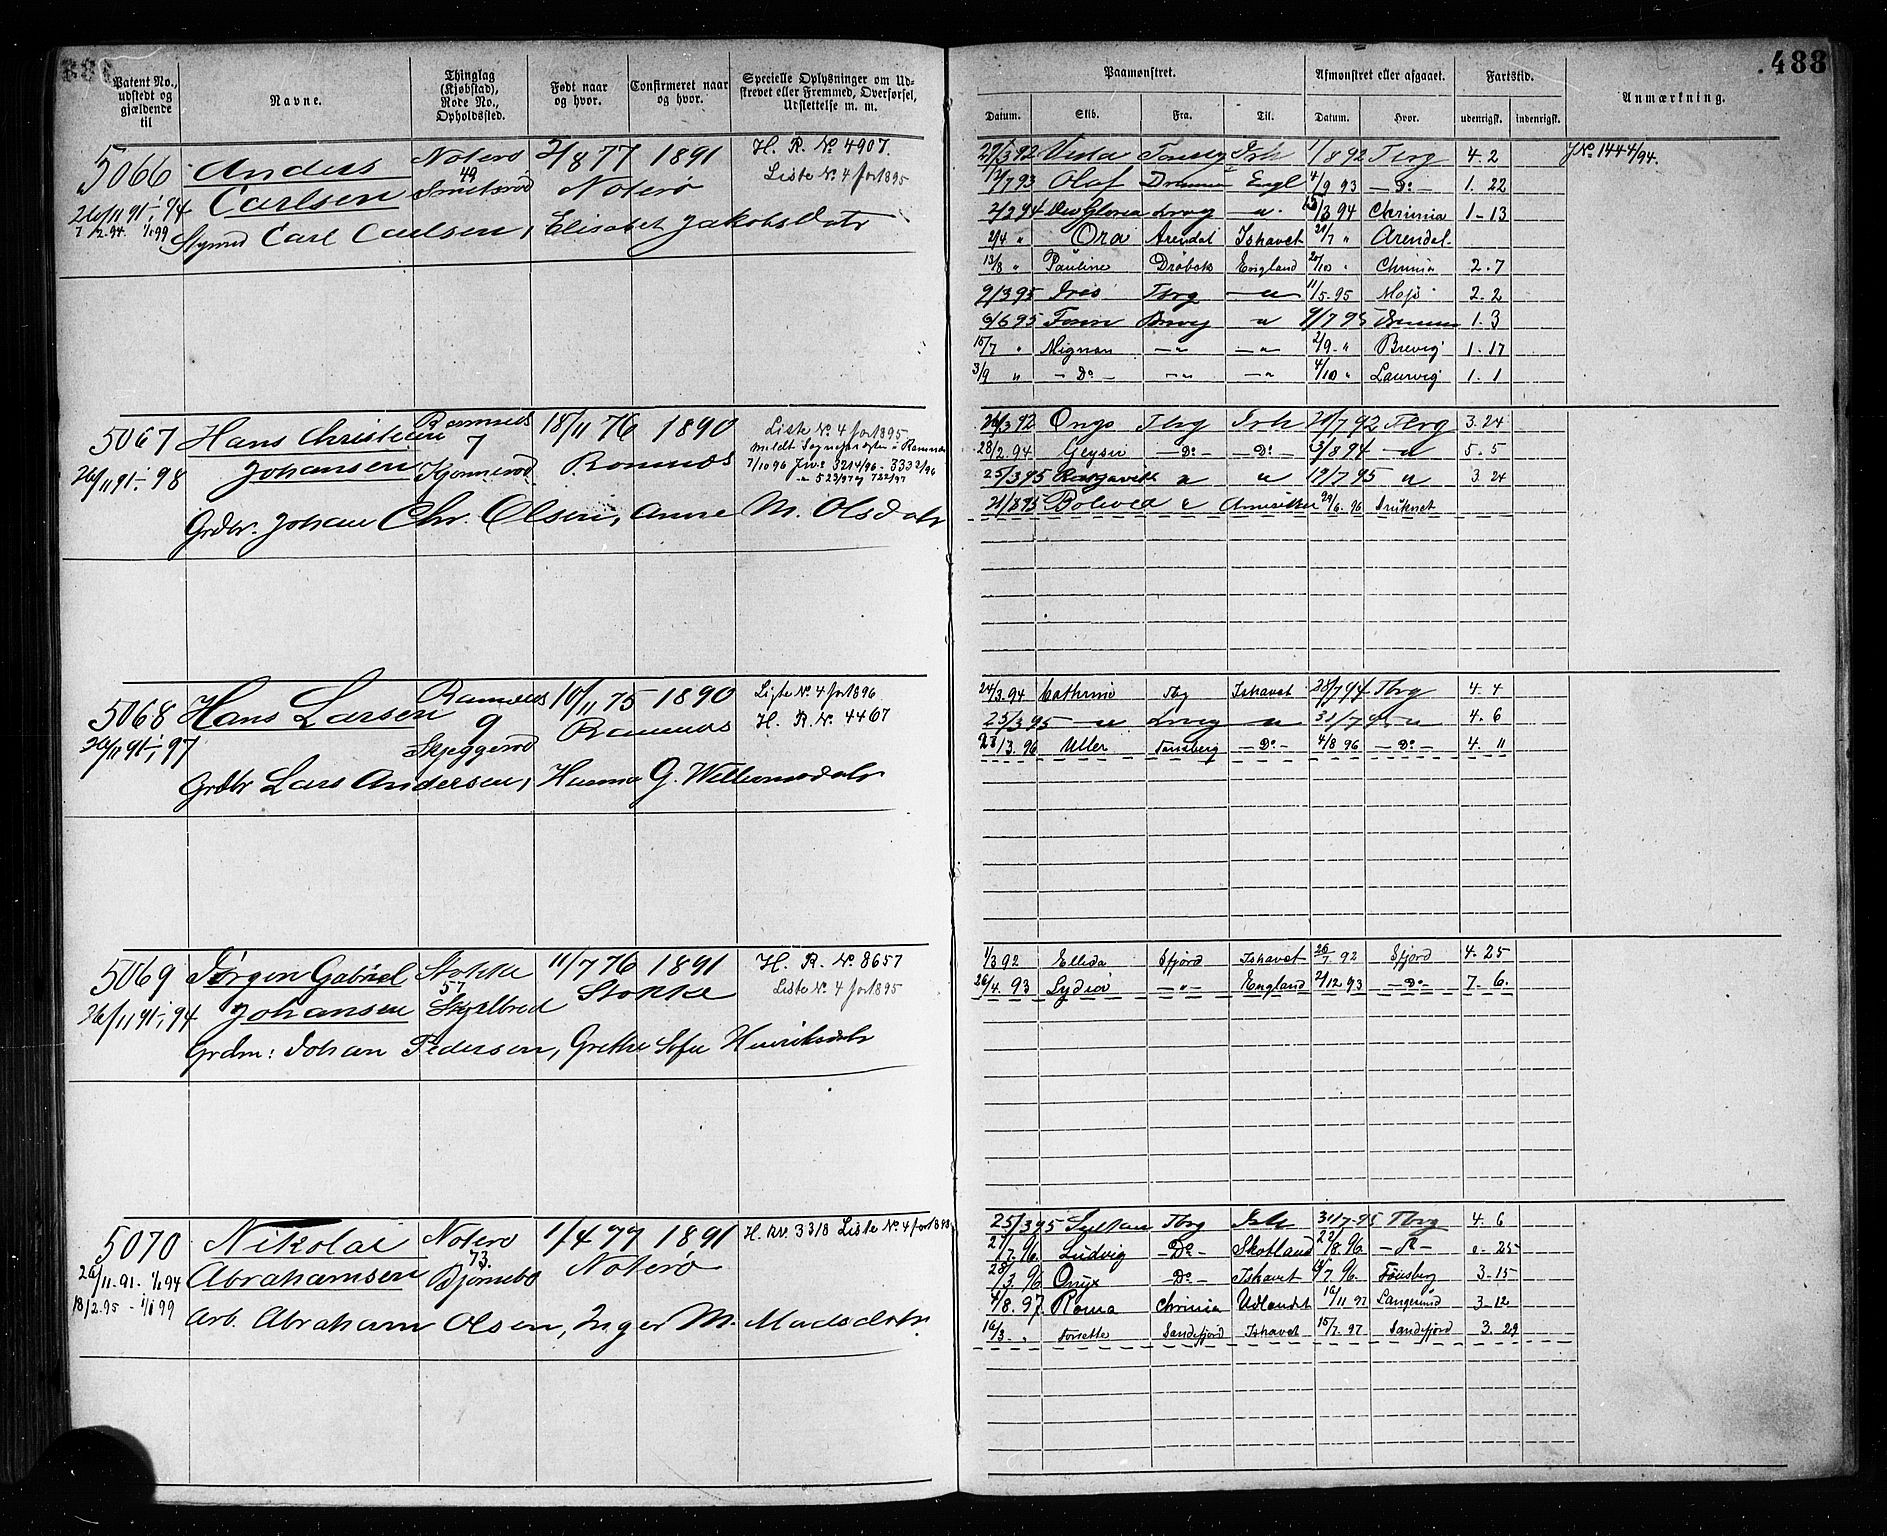 488
Patent No., udstedt og gjældende til
Navne.
Thinglag (Kjøbstad), Rode No., Opholdssted.
Født naar og hvor.
Confirmeret naar og hvor.
Specielle Oplysninger om Udstrevet eller Fremmed, Overførsel, Udslettelse m. m.
Paamønstret.
Afmønstret eller afgaaet.
Fartstid.
Anmærkning.
Datum. Skib. Fra. Til. Datum. Hvor. udenrigsk. indenrigsk.
5066 Anders Noterø 2/8 77 1891 H. R. No 4907.
Carlsen 49 Noterø Liste No. 4 for 1895
26/11 91 - 94
Carl Carlsen, Elisabet Jakobsdatr
29/3 92 Vesta Ish 1/8 92 Tbrg 4. 2 JNo 1444/94.
12/7 93 Olaf Engl 4/9 93 - Do - 1. 22
2/2 94 Deo Gloria Lrvg - " - 15/3 94 Chrinia 1 - 13
2/4 " Ora Arendal Ishavet 21/7 " Arendal
13/8 " Pauline Drøbak England 20/10 " Chrinia 2. 7
9/3 95 Tbrg - " 11/5. 95 Moss 2. 2
6/6 95 " 9/7 95 1. 3
15/7 " Mignon - " - " 2/9. " Brevig 1. 17
3/9 " - Do - - " - " 4/10 " Laurvig 1. 1
5067 Hans Christian Ramnæs 18/11 76 1890 Liste No. 4 for 1895
Johansen 7 Ramnæs
26/11 91 - 98
7/10 96 3214/96 - 3332/96
523/97 og 722/97
Grdbr. Johan Chr. Olsen, Anne M. Olsdatr
26/3 92 Tbrg Ish 21/7 92 Tbrg 3. 24
28/2 94 Geysir - Do - - Do - 3/8 94 - " 5. 5
25/3 95 " " 19/7 95 " 3. 24
21/8 95 Bolivia " 29/6. 96
5068 Hans Larsen Ramnæs 10/11 75 1890 Liste No. 4 for 1896
9 Ramnæs H. R. No. 4467
26/11 91 - 97 Skjeggerød
Grdbr Lars Andersen, Hanna G. Willumsdatr
24/3. 94 Cathrine Tbg Ishavet 28/7 94 Tbrg 4. 4
25/3 95 - " Lrvig - " 31/7 95 - " 4. 6
23/3. 96 Uller Tønsberg - Do - 4/8 96 - Do - 4. 11
5069 Jørgen Gabriel Stokke 11/7 76 1891 H. R. No. 8657
Johansen 57 Stokke Liste No. 4 for 1895
26/11 91 - 94 Skjelbred
Grdm: Johan Pedersen, Grethe Sofie Henriksdatr
1/3 92 Ellida Sfjord Ishavet 26/7 92 Sfjord 4. 25
26/4. 93 Lydia - " - England 2/12 93 - Do - 7. 6.
5070 Nikolai Noterø 1/4 77 1891 H. Rv. 3318 Liste No. 4 for 1898
Abrahamsen 73. Noterø
26/11. 91. 1/1 94 Bjørnebo
18/2. 95 - 1/1 99
Arb. Abraham Olsen, Inger M. Madsdatr
25/3 95 Sultan Tbrg Ish 31/7 95 Tbrg 4. 6
21/7. 96 Ludvig - Do - Skotland 22/8. 96 - Do - 0. 25
28/3. 96 Onyx - Do - Ishavet 14/7. 96. Tønsberg 3. 15
4/8. 97. Roma Chrinia Udlandet 16/11 97 Langesund 3. 12
16/3. " Forsette Sandefjord Ishavet 15/7. 97 Sandefjord 3. 29